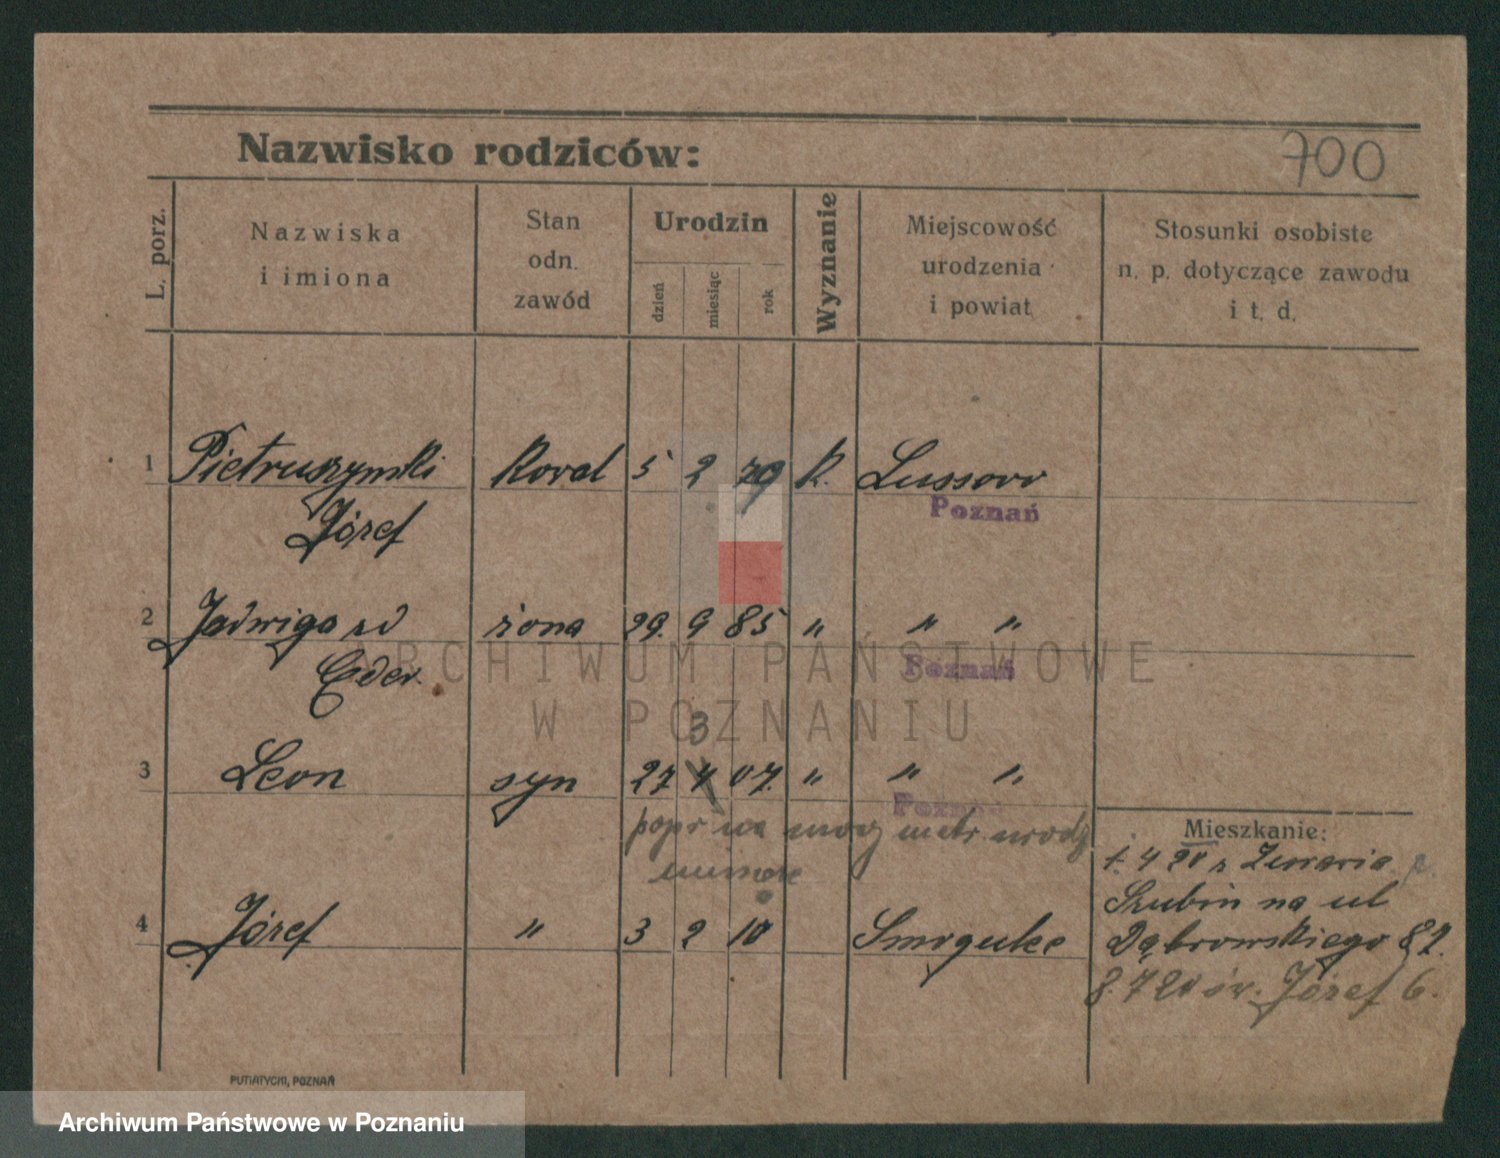 Nazwisko rodziców:
700
L. porz.
Nazwiska
i imiona
Stan
odn.
zawód
Urodzin
dzień
miesiąc
rok
Wyznanie
Miejscowość
urodzenia
i powiat
Stosunki osobiste
n. p. dotyczące zawodu
i t. d.
1 Pietruszynski koval 5 2 79 k. Lussowo
Józef
Poznań
2 Jadwiga zd żona 29. 9 85 " " "
Eder
Poznań
3
3 Leon syn 27 4 07. " " "
Poznań
metr. urodz
Mieszkanie:
1. 4 20 z
Szubin na ul
4 Józef " 3 2 10 Smogulec
Dąbrowskiego 82.
8. 7 20 św. Józef 6.
PUTIATYCKI, POZNAŃ
ARCHIWUM PAŃSTWOWE
W POZNANIU
Archiwum Państwowe w Poznaniu